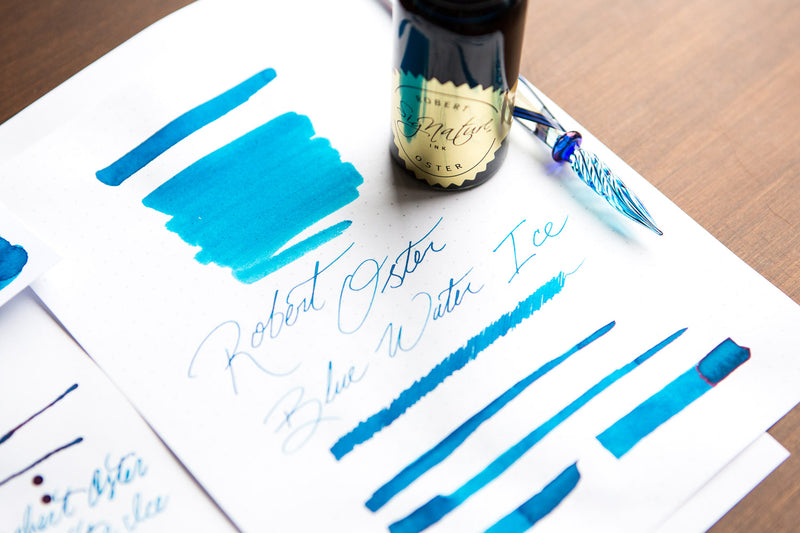 ROBERT
SigNature
INK
OSTER
Robert Oster
Blue Water Ice
Oster
Ice